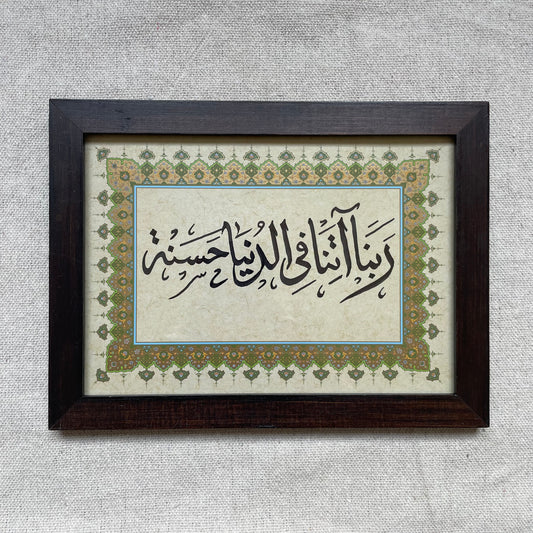 رَبَنَا آتِنَا فِي الدُنْيَا حَسَنَة